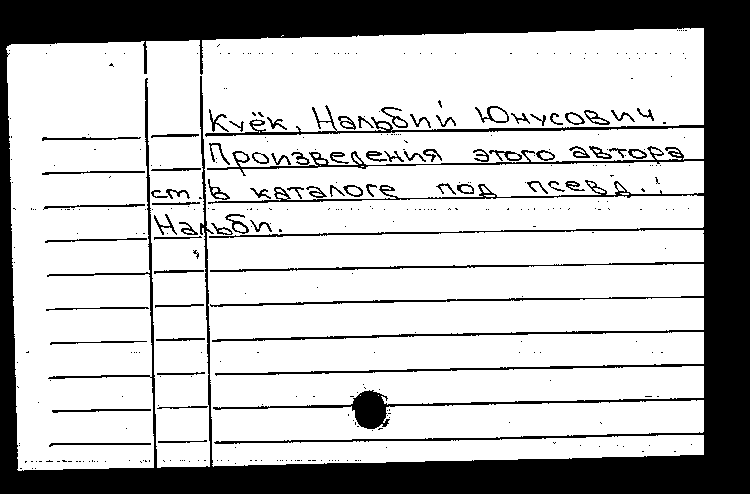 Куёк, Нальбий Юнусович.
Произведения этого автора
ст. в каталоге под псевд.:
Нальби.